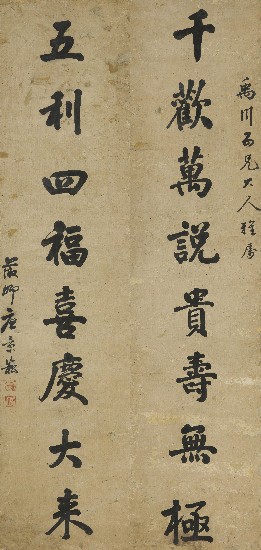 禹川五兄大人雅屬
千歡萬說貴壽無極
五利四福喜慶大来
薇卿唐景崧